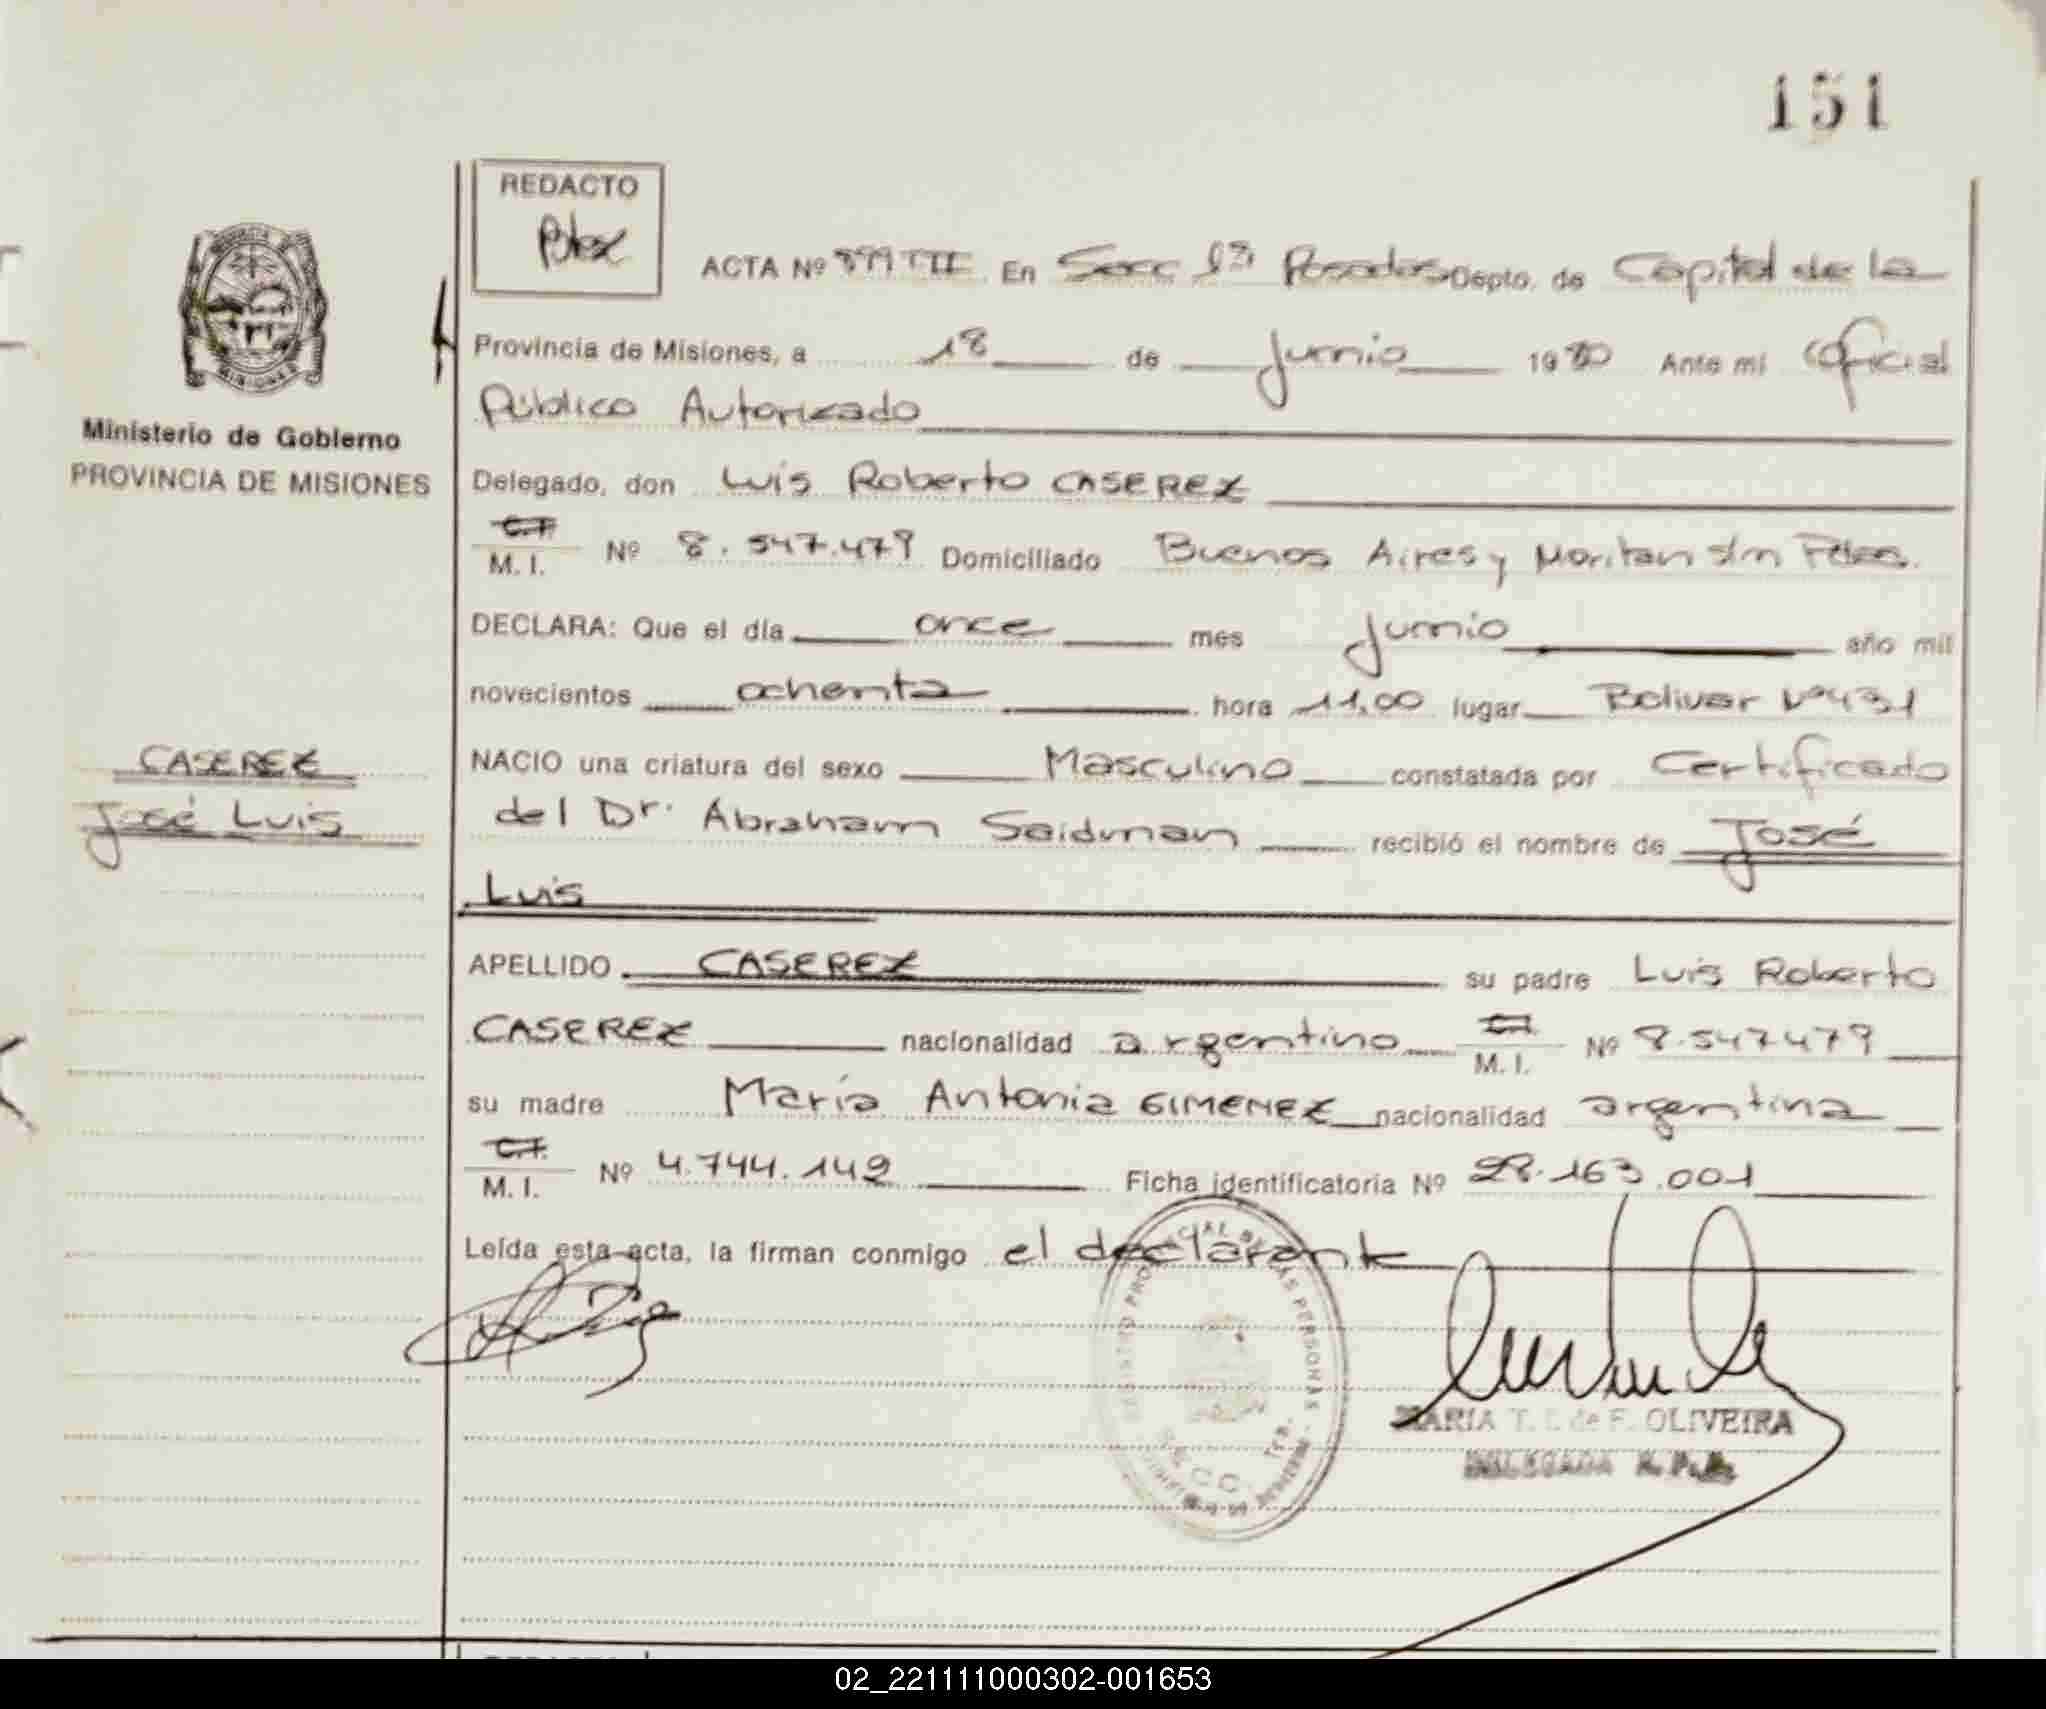 151
REDACTO
ACTA Nº 899 TTT En Secc 1ª Posadas Depto. de Capital de la
Provincia de Misiones, a 18 de Junio 1980 Ante mi Oficial
Público Autorizado
Ministerio de Gobierno
PROVINCIA DE MISIONES
Delegado, don Luis Roberto CASEREZ
C.I.
M. I. Nº 8.547.479 Domiciliado Buenos Aires y Moritan s/n
DECLARA: Que el día once mes Junio año mil
novecientos ochenta hora 11,00 lugar Bolivar Nº 431
CASEREZ
José Luis
NACIO una criatura del sexo Masculino constatada por Certificado
del Dr. Abraham Saidman recibió el nombre de José
Luis
APELLIDO CASEREZ su padre Luis Roberto
CASEREZ nacionalidad argentino C.I. M. I. Nº 8.547479
su madre María Antonia GIMENEZ nacionalidad argentina
C.I.
M. I. Nº 4.744.149 Ficha identificatoria Nº 28.163.001
Leída esta acta, la firman conmigo el declarante
REGISTRO PROVINCIAL DE LAS PERSONAS
SECC. 1ra.
MARIA T. I. de F. OLIVEIRA
DELEGADA R. P. P.
02_221111000302-001653